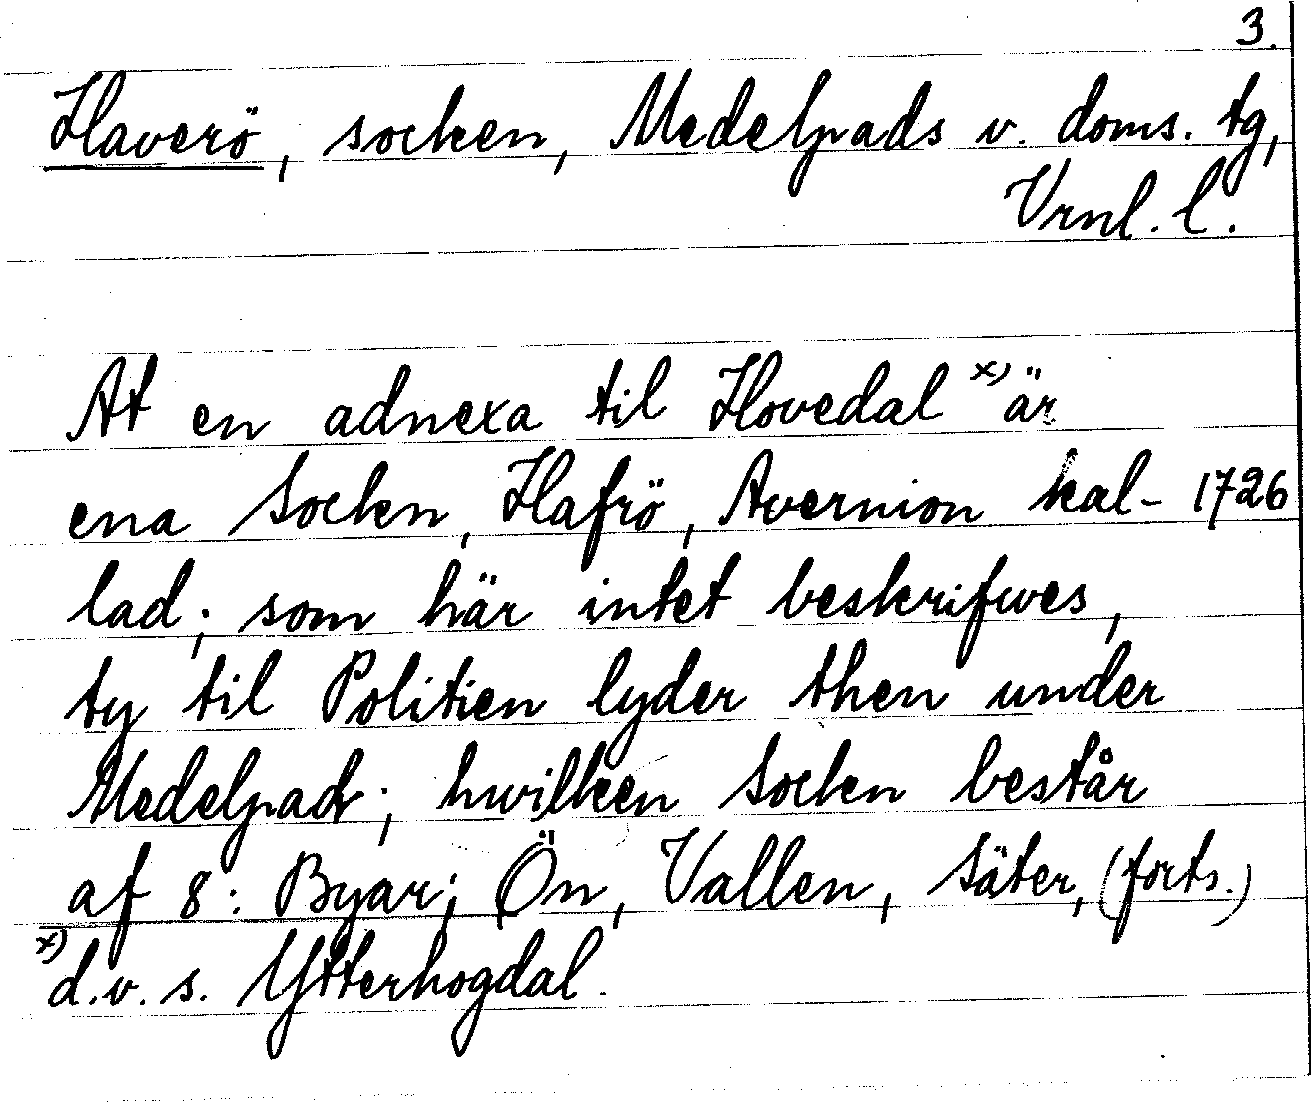 3.
Haverö, socken, Medelpads v. doms. tg,
Vrnl. l.
At en adnexa til Hovedal x) är
ena Socken, Hafrö, Avernion kal- 1726
lad; som här intet beskrifwes,
ty til Politien lyder then under
Medelpad; hwilken Socken består
af 8: Byar; Ön, Vallen, Säter, (forts.)
x) d.v.s. Ytterhogdal.